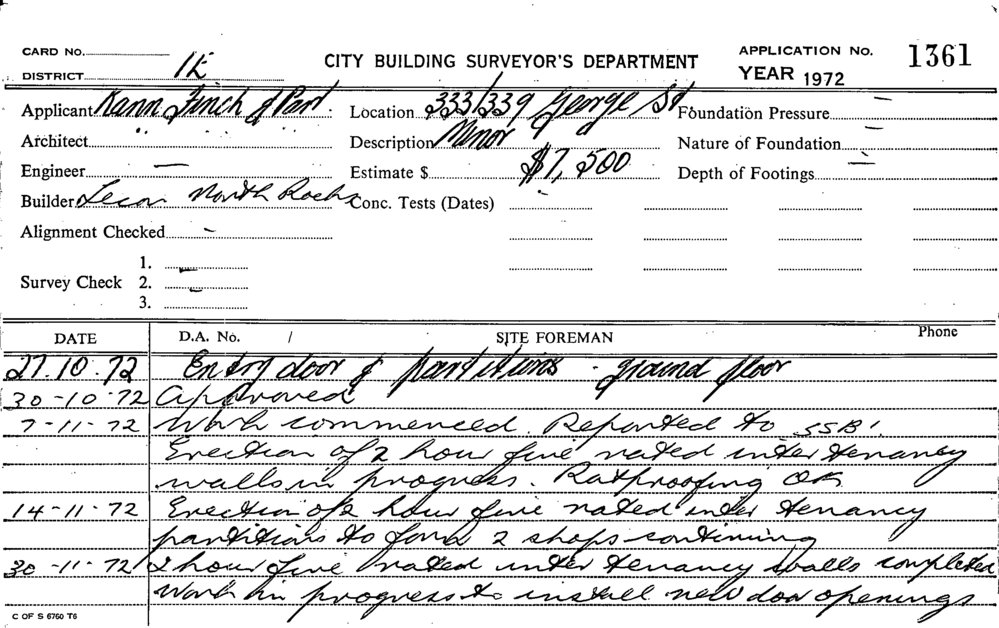 CARD No.
DISTRICT 1E
CITY BUILDING SURVEYOR'S DEPARTMENT
APPLICATION No. 1361
YEAR 1972
Applicant Kann Finch & Part
Location 333/339 George St
Foundation Pressure —
Architect " "
Description Minor
Nature of Foundation —
Engineer —
Estimate $ $7,500
Depth of Footings —
Builder Lecon North Rocks
Conc. Tests (Dates) -
Alignment Checked -
Survey Check
1.
2.
3.
DATE D.A. No. / SITE FOREMAN Phone
27.10.72 Entry door & partitions - ground floor
30-10-72 Approved
7-11-72 Work commenced. Reported to SSB.
Erection of 2 hour fire rated inter tenancy
walls in progress. Ratproofing OK
14-11-72 Erection of 2 hour fire rated inter tenancy
partitions to form 2 shops continuing
30-11-72 2 hour fire rated inter tenancy walls completed
Work in progress to install new door openings
C OF S 6760 T6